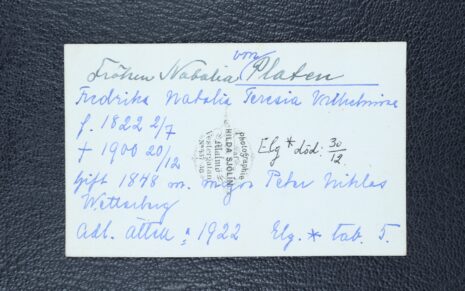 Fröken Natalia von Platen
Fredrika Natalia Teresia Vilhelmina
f. 1822 2/7
† 1900 20/12
Elg * död. 30/12
gift 1848 m. major Peter Niklas
Wetterberg
Adl. ätten 1922 Elg. * tab. 5.
Photographie
HILDA SJÖLIN
Malmö
Vestergatan